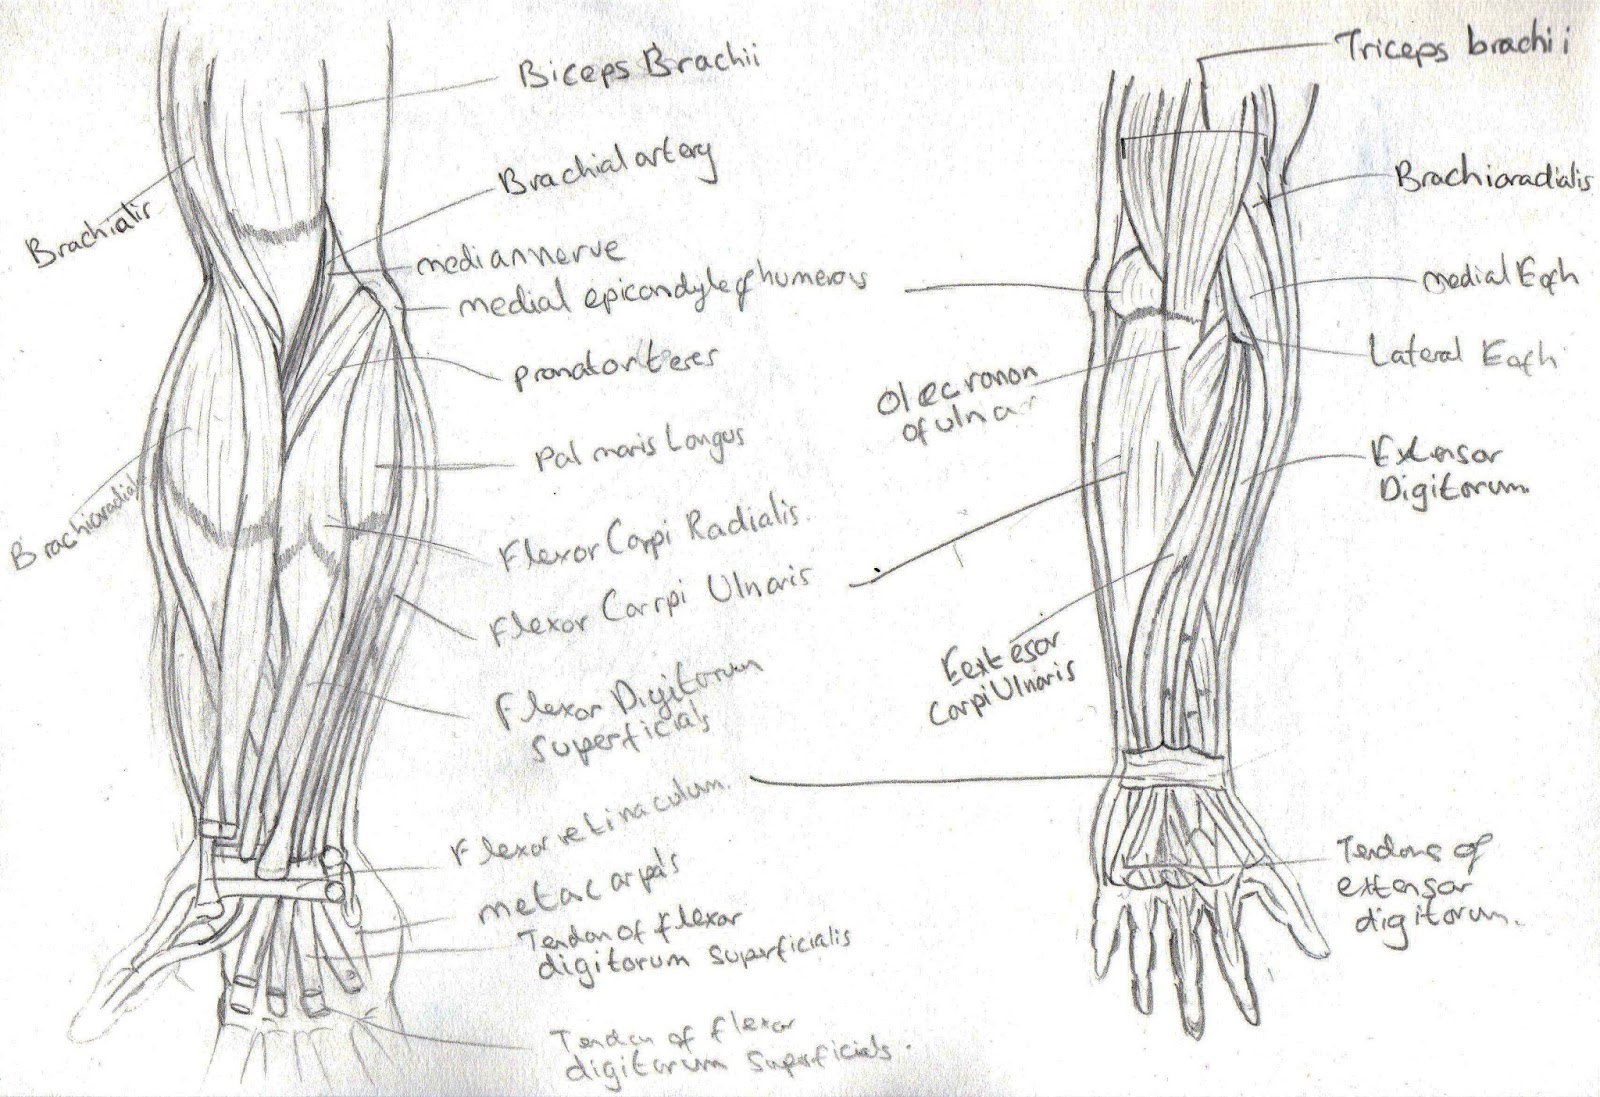 Biceps Brachii
Brachial artery
Brachialis
mediannerve
medial epicondyle of humerous
pronator teres
Palmaris Longus
Brachioradialis
Flexor Carpi Radialis.
Flexor Carrpi Ulnaris
Flexor Digitorum
Superficials
Flexor retinaculum.
metacarpals
Tendon of flexor
digitorum superficialis
Tendon of flexor
digitorum superficials.
Triceps brachii
Brachioradialis
medial Eofh
Lateral Eofh
Olecronon
of ulnar
Extensor
Digitorum.
Eextesor
CarpiUlnaris
Tendons of
extensor
digitorum.